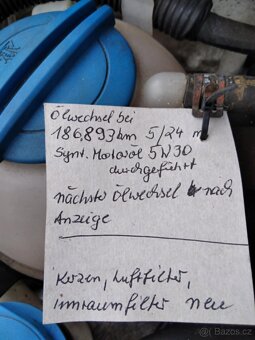 Ölwechsel bei
186,893km 5/24 m
Synt. Motoröl 5W30
durchgeführt
nächster ölwechsel nach
Anzeige
Kerzen, Luftfilter,
innraumfilter neu
Bazos.cz